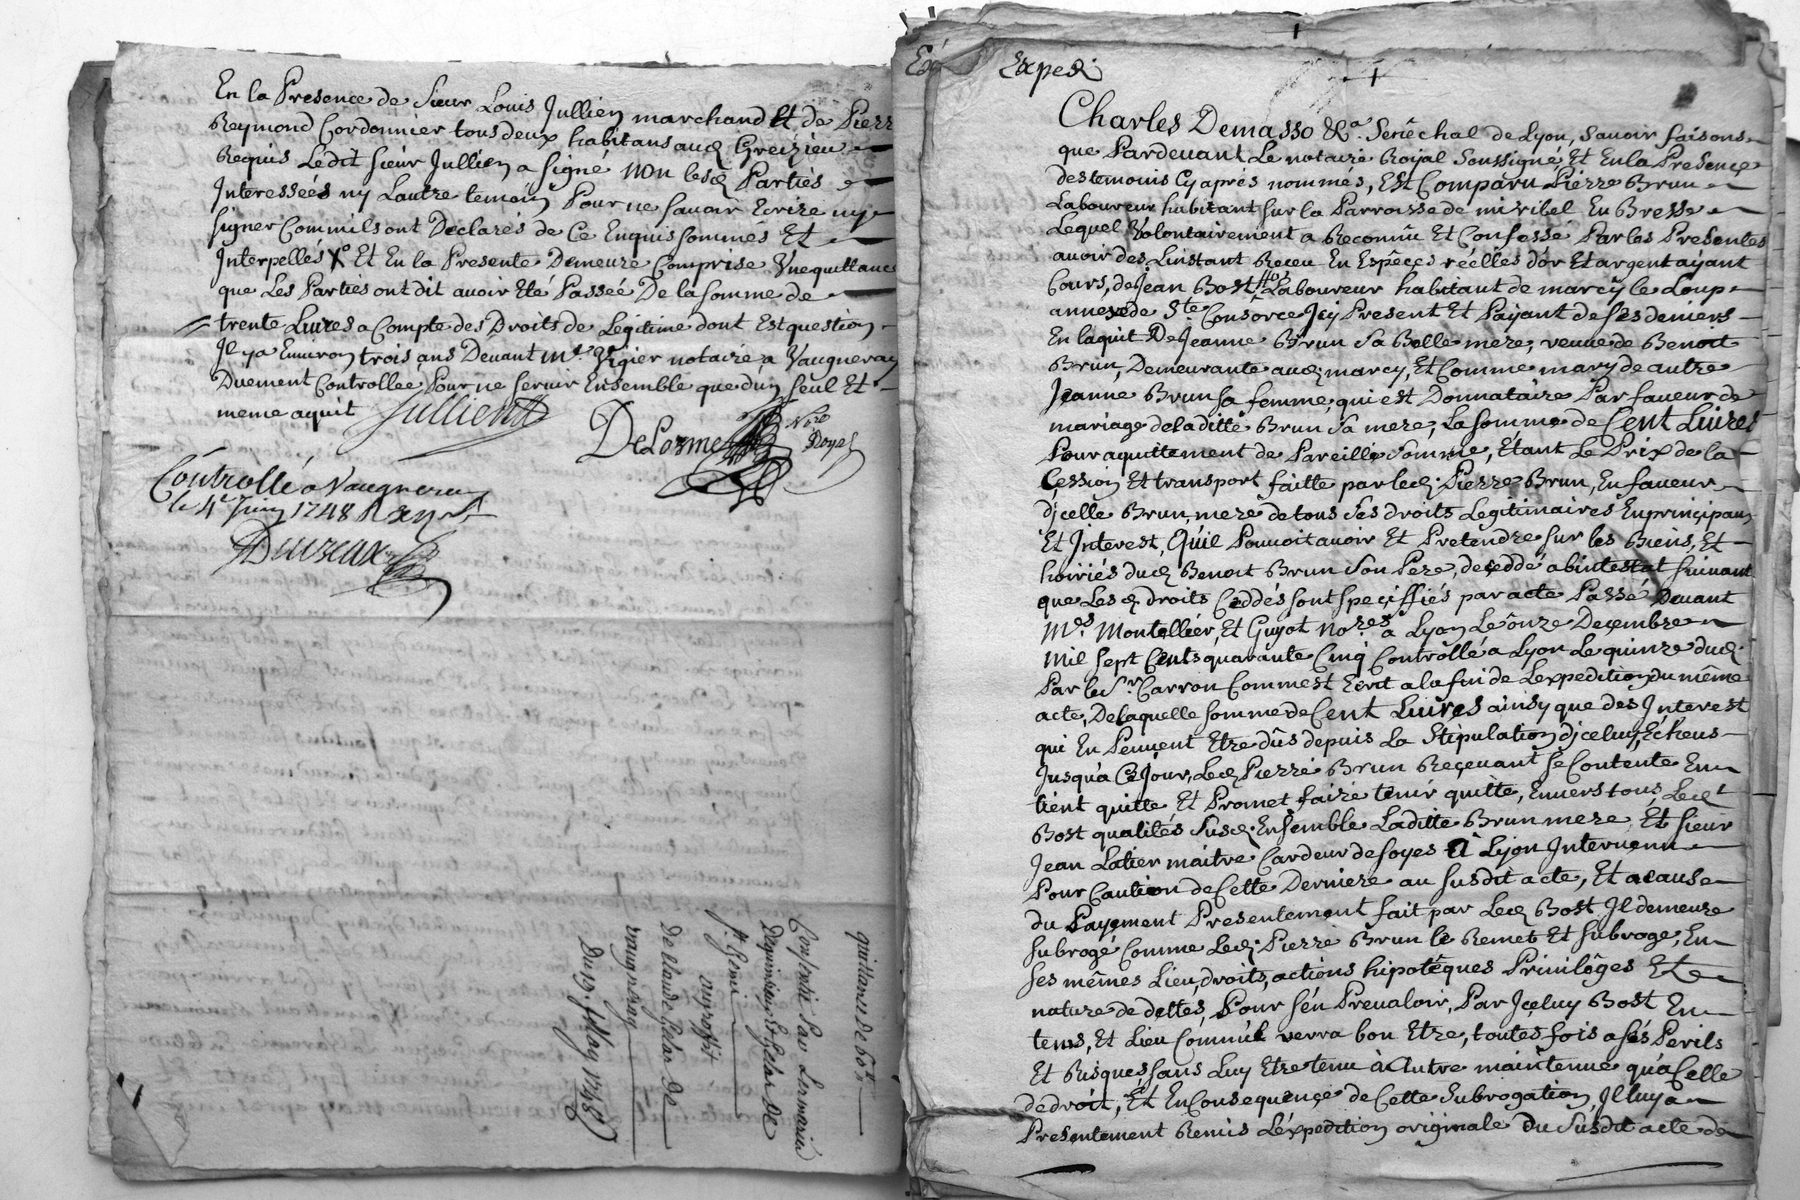 En la Presence de Sieur Louis Jullien marchand Et de Pierr
Reymond Cordonnier tous deux habitans aud Greizieu
Requis Ledit sieur Jullien a signé non lesd Parties
Interesseés ny Lautre temoin Pour ne savoir Ecrire ny
signer Comm'ils ont Declarés de Ce Enquis sommés Et
Interpellés X Et En la Presente Demeure Comprise Une quittance
que Les Parties ont dit avoir Eté Passeé De la somme de
trente Livres a Compte des Droits de Legitime dont Est question
Il y a Environ trois ans Devant Me Vigier notaire a Vaugneray
Duement Controlleé, Pour ne servir Ensemble que d'un seul Et
meme aquit Jullien
DeLorme Nore Royal
Controllé a Vaugneray
le 4e Juin 1748
quittance de 60#
Consentie Par Lermarié
au proffit
De Claude Pelar De
vaugneray
Du 19. May 1748
Exped
Charles Demasso &a Senêchal de Lyon, savoir faisons
que Pardevant Le notaire Royal soussigné Et En la Presence
des temoins Cy aprés nommés, Est Comparu Pierre Brun
Laboureur habitant sur la Parroisse de miribel En Bresse
Lequel Volontairement a Reconnû Et Confessé Par les Presentes
avoir des L'instant Receu En Espêçes réelles d'or Et argent ayant
Cours, de Jean Bost Laboureur habitant de marcy le Loup
annexe de Ste Consorce Icy Present Et Payant de ses deniers
En laquit De Jeanne Brun sa Belle mere, veuve de Benoit
Brun, Demeurante aud marcy, Et Comme mary de autre
Jeanne Brun sa femme, qui est Donnataire Par faveur de
mariage de la ditte Brun sa mere, La somme de Cent Livres
Pour aquittement de Pareille somme, Etant Le Prix de la
Çession Et transport faitte par led. Pierre Brun, En faveur
d'jcelle Brun, mere de tous ses droits Legitimaires En principaux
Et Interest, Qu'il Pouvoit avoir Et Pretendre sur les Biens, Et
hoiriés dud Benoit Brun son Pere, deçeddé abintestat suivant
que Lesd droits Ceddés sont speçiffiés par acte Passé Devant
Mes Montellier, Et Guyot Nores a Lyon Le ônze Deçembre
Mil sept Cents quarante Cinq Contrôllé a Lyon Le quinze dud.
Par le Sr. Carron Comm'est Ecrit a la fin de L'expedition du même
acte, De laquelle somme de Cent Livres ainsy que des Interest
qui En Peuvent Etre dûs depuis La stipulation d'jceluy, Echeus
Jusqu'a Ce Jour, Led Pierre Brun Reçevant se Contente En
tient quitte Et Promet faire tenir quitte, Envers tous, Ledt
Bost qualités susd. Ensemble Laditte Brun mere, Et sieur
Jean Latier maitre Cardeur de soyes a Lyon Intervenu
Pour Caution de Cette Derniere au susdit acte, Et a cause
du Payement Presentement fait par Led Bost Il demeure
subrogé Comme Led. Pierre Brun le Remet Et subroge, En
ses mêmes Lieu, droits, actions hipotêques Privilêges Et
nature de dettes, Pour s'én Prevaloir, Par Içeluy Bost En
tems, Et Lieu Comm'il verra bon Etre, toutes fois a sés Perils
Et Risques, sans Luy Etre tenu à Autre maintenue qu'a Celle
de droit, Et En Consequençe de Cette Subrogation, Il luy a
Presentement Remis L'éxpedition originale Du susdit acte de